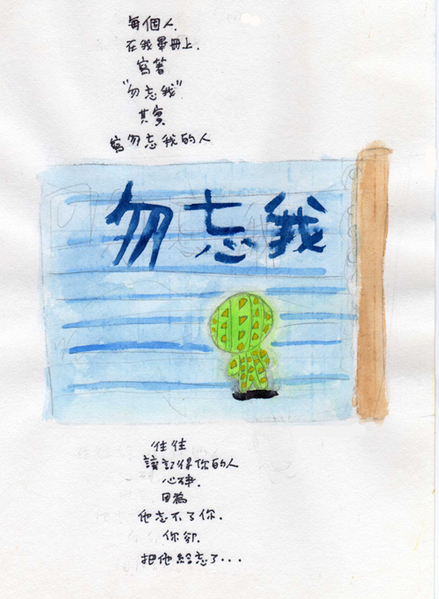 每個人.
在我畢冊上.
寫著
"勿忘我"
其實
寫勿忘我的人
勿忘我
往往
記得你的人
心碎.
因為
他忘不了你.
你卻.
把他給忘了...